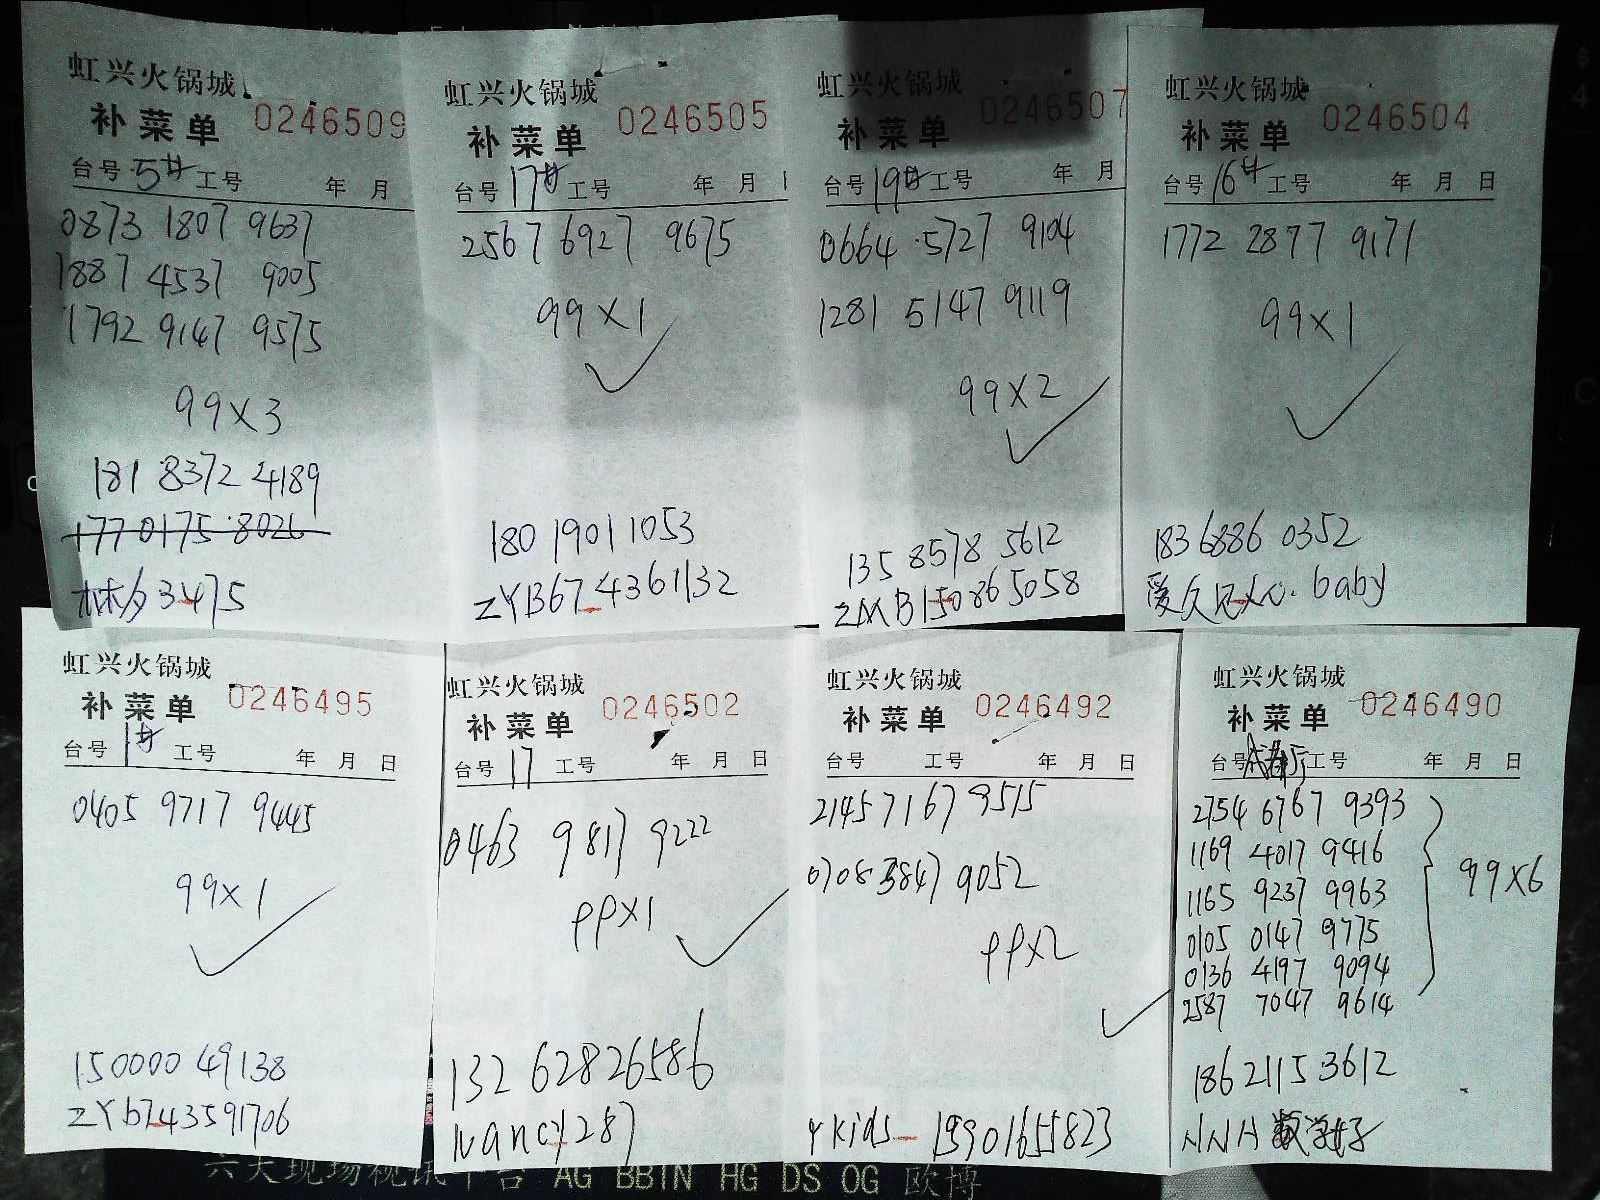 虹兴火锅城
补菜单 0246509
台号 5# 工号 年 月
0873 1807 9637
1887 4537 9005
1792 9147 9575
99×3
181 8372 4189
177 0175 8026
3475
虹兴火锅城
补菜单 0246505
台号 17# 工号 年 月
2567 6927 9675
99×1
180 1901 1053
ZYB67_4361132
虹兴火锅城
补菜单 0246507
台号 19# 工号 年 月
0664 5727 9104
1281 5147 9119
99×2
135 8578 5612
虹兴火锅城
补菜单 0246504
台号 16# 工号 年 月 日
1772 2877 9171
99×1
183 6886 0352
baby
虹兴火锅城
补菜单 0246495
台号 1# 工号 年 月 日
0405 9717 9445
99×1
150000 49138
虹兴火锅城
补菜单 0246502
台号 17 工号 年 月 日
0463 9817 9222
99×1
132 62826586
虹兴火锅城
补菜单 0246492
台号 工号 年 月 日
2145 7167 9515
0708 3847 9052
99×2
kids_ 15901655823
虹兴火锅城
补菜单 0246490
台号 工号 年 月 日
2754 6767 9393
1169 4017 9416
1165 9237 9963
0105 0147 9775
0136 4197 9094
2587 7047 9614
99×6
186 2115 3612
六大现场视讯平台 AG BBIN HG DS OG 欧博